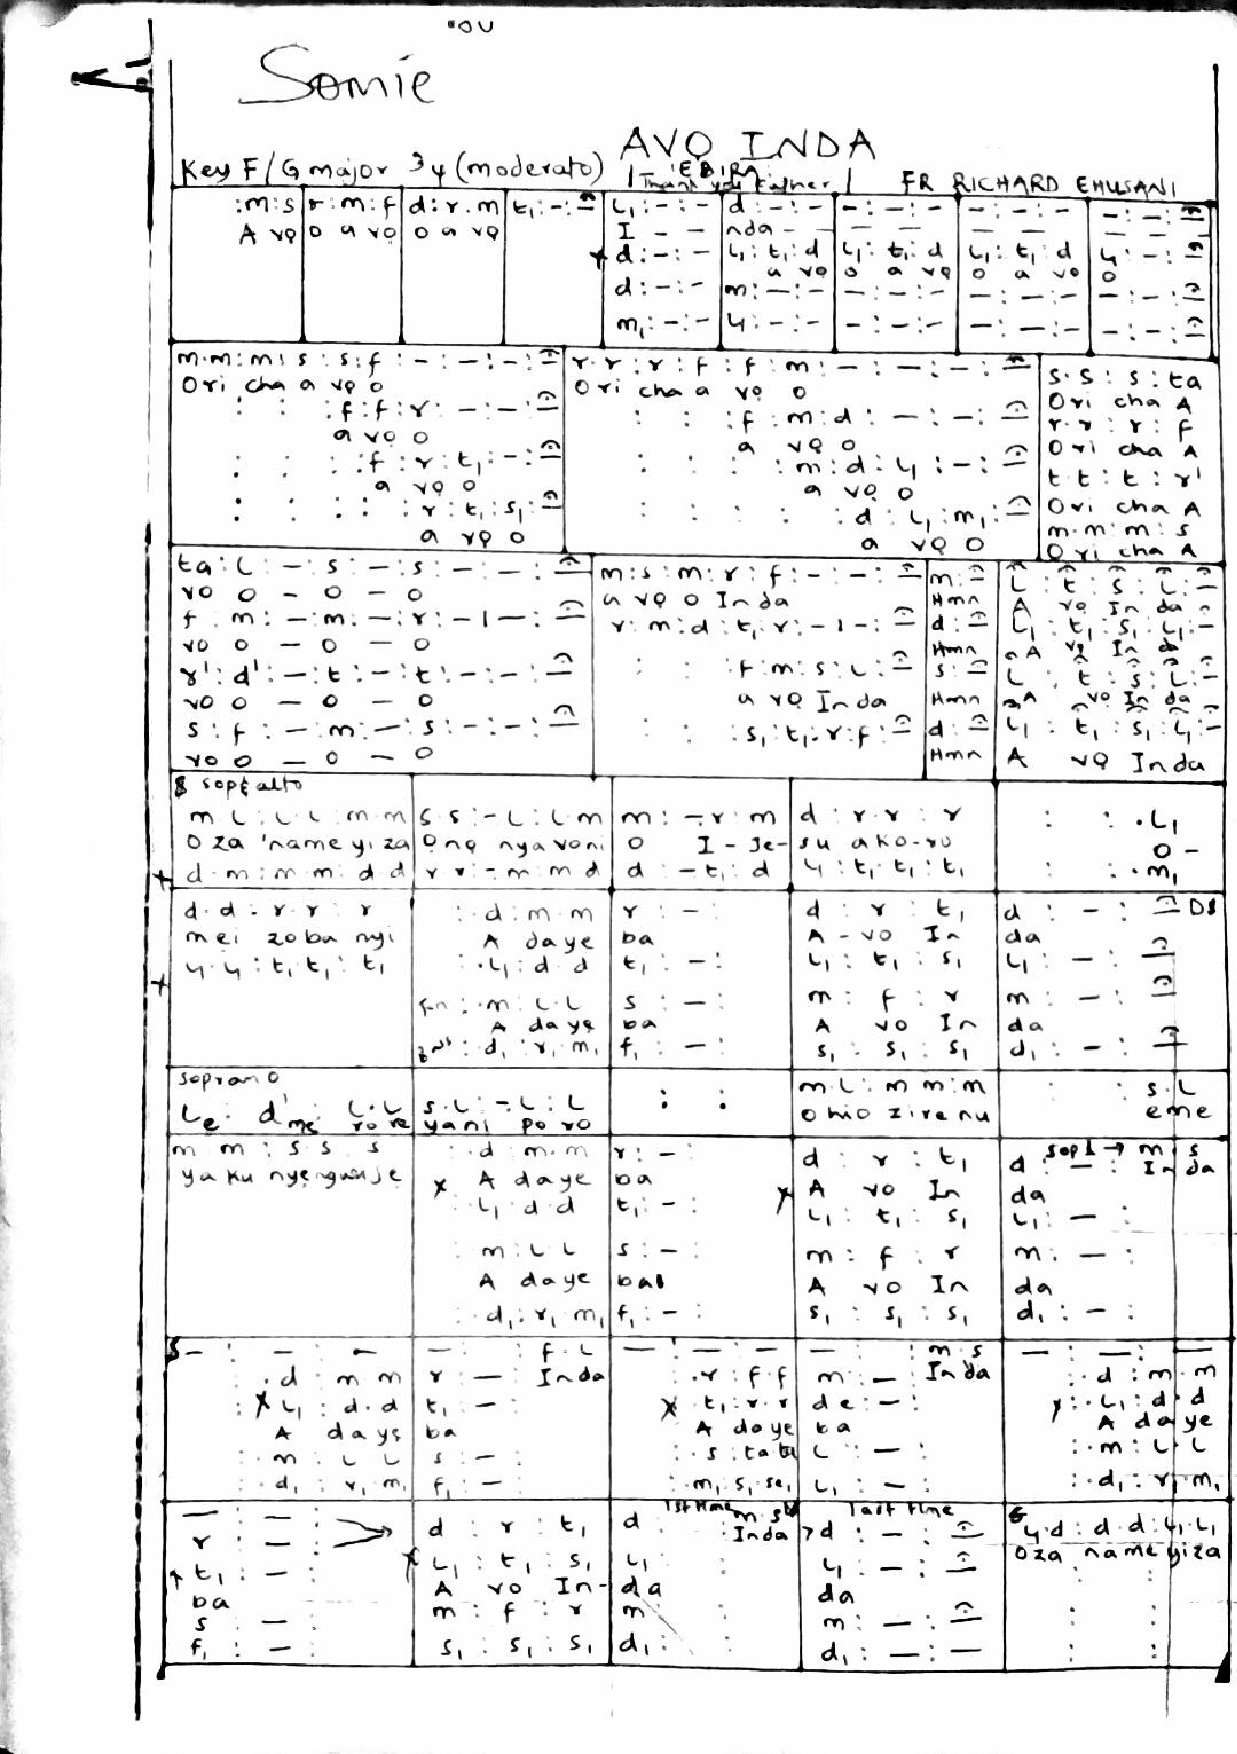 Somie
AVỌ INDA
Key F/G major 3/4 (moderato) / 'EBIRA' Thank you Father / FR RICHARD EHUSANI
:m:s | r:m:f | d:r.m | t₁:-:- | L₁:-:- | d:-:- | -:-:- | -:-:- | -:-:-
A vọ | o a vọ | o a vọ | I - - | nda - -
d:-:- | L₁:t₁:d | L₁:t₁:d | L₁:t₁:d | L₁:-:-
a vọ | o a vọ | o a vọ | o
d:-:- | m:-:- | -:-:- | -:-:- | -:-:-
m₁:-:- | L₁:-:- | -:-:- | -:-:- | -:-:-
m.m:m:s:s:f:-:-:- | r.r:r:f:f:m:-:-:-:- | s.s:s:ta
Ori cha a vọ o | Ori cha a vọ o | Ori cha A
: : :f:f:r:-:-:- | : : :f:m:d:-:-:- | r.r:r:f
a vo o | a vọ o | Ori cha A
: : : :f:r:t₁:-:- | : : : :m:d:L₁:-:- | t t:t:r'
a vọ o | a vọ o | Ori cha A
: : : : :r:t₁:s₁:- | : : : : :d:L₁:m₁:- | m.m:m:s
a vọ o | a vọ o | Ori cha A
ta:L:-:s:-:s:-:-:- | m:s:m:r:f:-:-:- | m:- | L:t:s:L:-
vo o - o - o | a vọ o Inda | Hmn | A vọ Inda
f:m:-:m:-:r:-:-:- | r:m:d:t₁:r:-:-:- | d:- | L₁:t₁:s₁:L₁:-
vo o - o - o | Hmn | A vọ In da
r':d':-:t:-:t:-:-:- | : :f:m:s:L:- | s:- | L:t:s:L:-
vo o - o - o | a vọ Inda | Hmn | A vo In da
s:f:-:m:-:s:-:-:- | : :s₁:t₁:r:f:- | d:- | L₁:t₁:s₁:L₁:-
vo o - o - o | Hmn | A vọ Inda
sop & alto
m L:L L:m m | s s:-L:L m | m:-r:m | d:r r:r | : :.L₁
O za 'name yi za | Ọnọ nya voni | O I-Je- | su ako-ro | O -
d.m:m m:d d | r r:-m:m d | d -t₁:d | L₁:t₁ t₁:t₁ | : :.m₁
d.d:r.r:r | :.d:m m | r:-: | d:r:t₁ | d:-:- DS
mei zoba nyi | A daye | ba | A-vo In | da
L₁.L₁:t₁ t₁:t₁ | :.L₁:d d | t₁:-: | L₁:t₁:s₁ | L₁:-:-
:.m:L.L | s:-: | m:f:r | m:-:-
A daye | ba | A vo In | da
:d₁:r₁.m₁ | f₁:-: | s₁:s₁:s₁ | d₁:-:-
soprano
L:d':L.L | s.L:-L:L | : : | m L:m m:m | : :s.L
Le me rore | yani po ro | ohio zirenu | eme
m m:s s:s | :.d:m.m | r:-: | d:r:t₁ | d:-: sop 1 → m s
ya ku nyenguuje | A daye | ba | A vo In | da Inda
:.L₁:d d | t₁:-: | L₁:t₁:s₁ | L₁:-:
:.m:L L | s:-: | m:f:r | m:-:
A daye | ba | A vo In | da
:.d₁:r₁ m₁ | f₁:-: | s₁:s₁:s₁ | d₁:-:
s-:-:- | -: :f L | -:-:- | -: :m s | -:-:-
:.d:m m | r:-: Inda | :.r:f f | m:-: Inda | :.d:m.m
:.L₁:d.d | t₁:-: | :.t₁:r.r | de:-: | :.L₁:d.d
A days | ba | A daye | ba | A daye
:.m:L L | s:-: | :.s:ta ta | L:-: | :.m:L.L
:.d₁:r₁ m₁ | f₁:-: | :.m₁:s₁.se₁ | L₁:-: | :.d₁:r₁.m₁
1st time | last time
-:-: | d:r:t₁ | d: :m s | d:-:- | L₁.d:d.d:L₁.L₁
r:-: | Inda | Oza name yiza
t₁:-: | L₁:t₁:s₁ | L₁: : | L₁:-:-
ba | A vo In- | da | da
s:-: | m:f:r | m: : | m:-:-
f₁:-: | s₁:s₁:s₁ | d₁: : | d₁:-:-